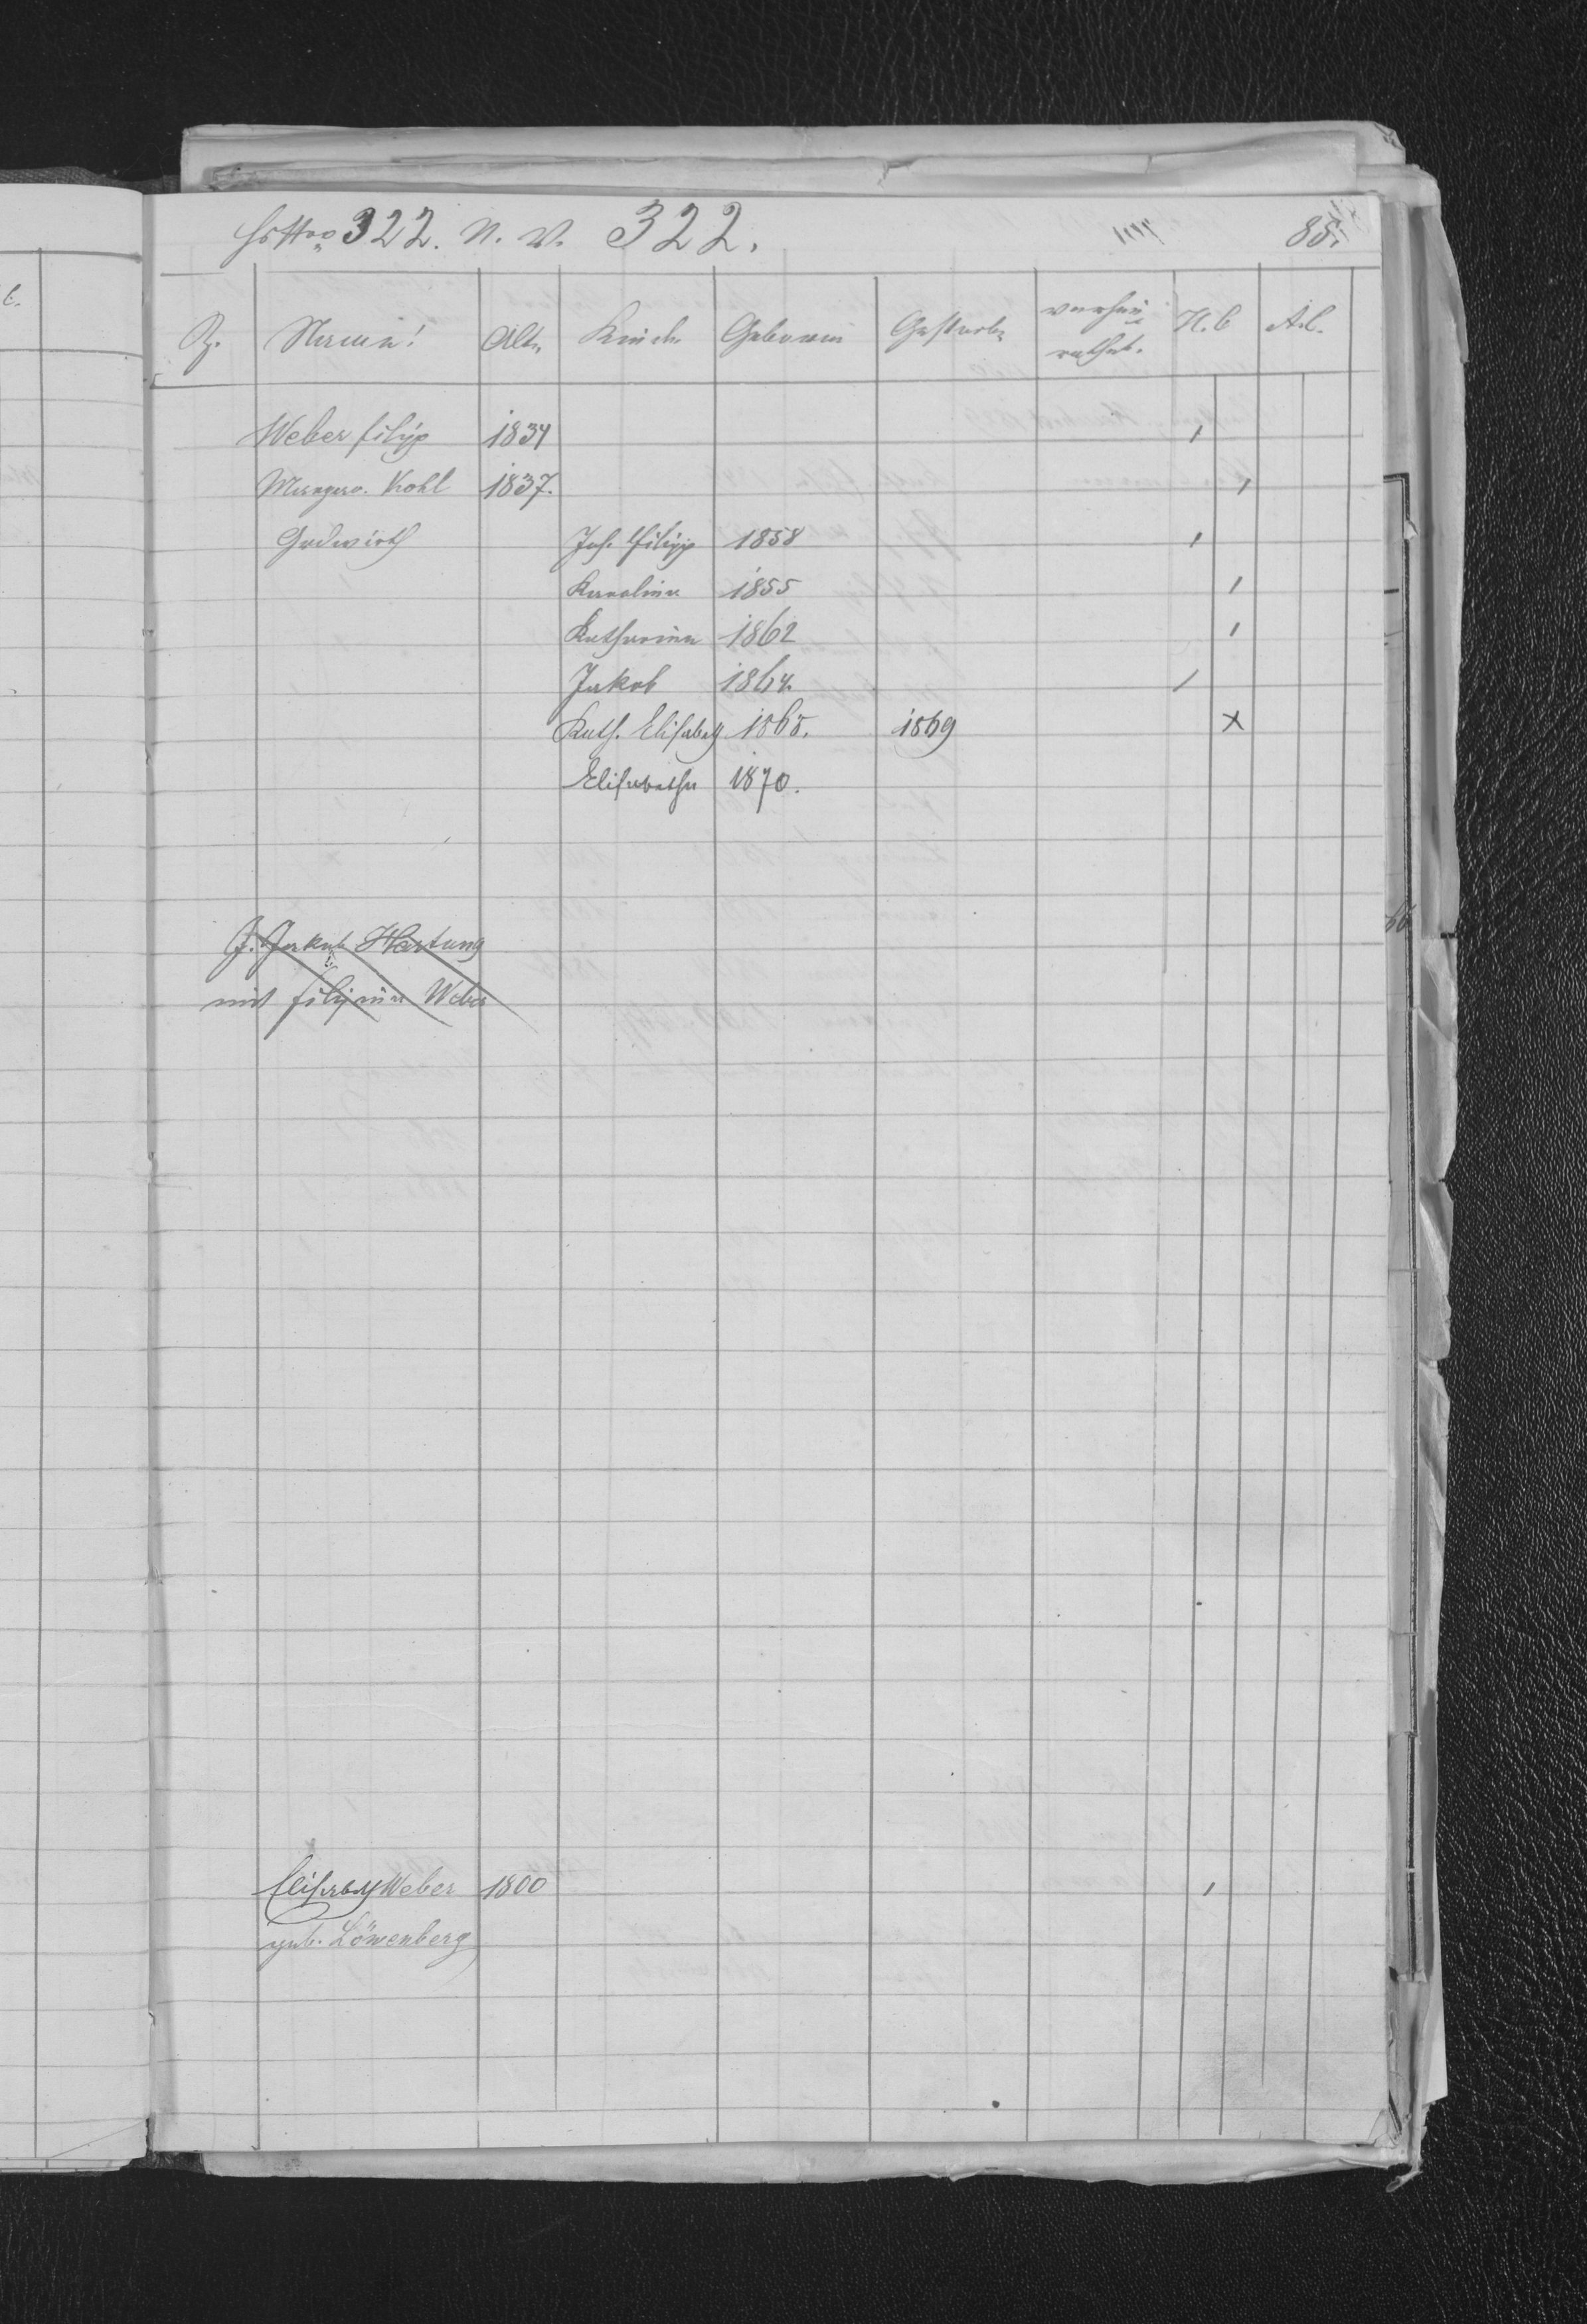 322. N. W. 322. 85.
Z. Namen! Alt. Kinde Geboren Gestorb. verhei- H. b A. l.
rathet.
Weber filipp 1834
Margar. Kohl 1837.
Joh. Filipp 1858
Karolina 1855
Katharina 1862
Jakob 1864.
Kath. Elisabeth 1865. 1869 x
Elisabetha 1870.
J. Jakob Hartung
mit filipina Weber
Elisabeth Weber 1800
geb. Löwenberg